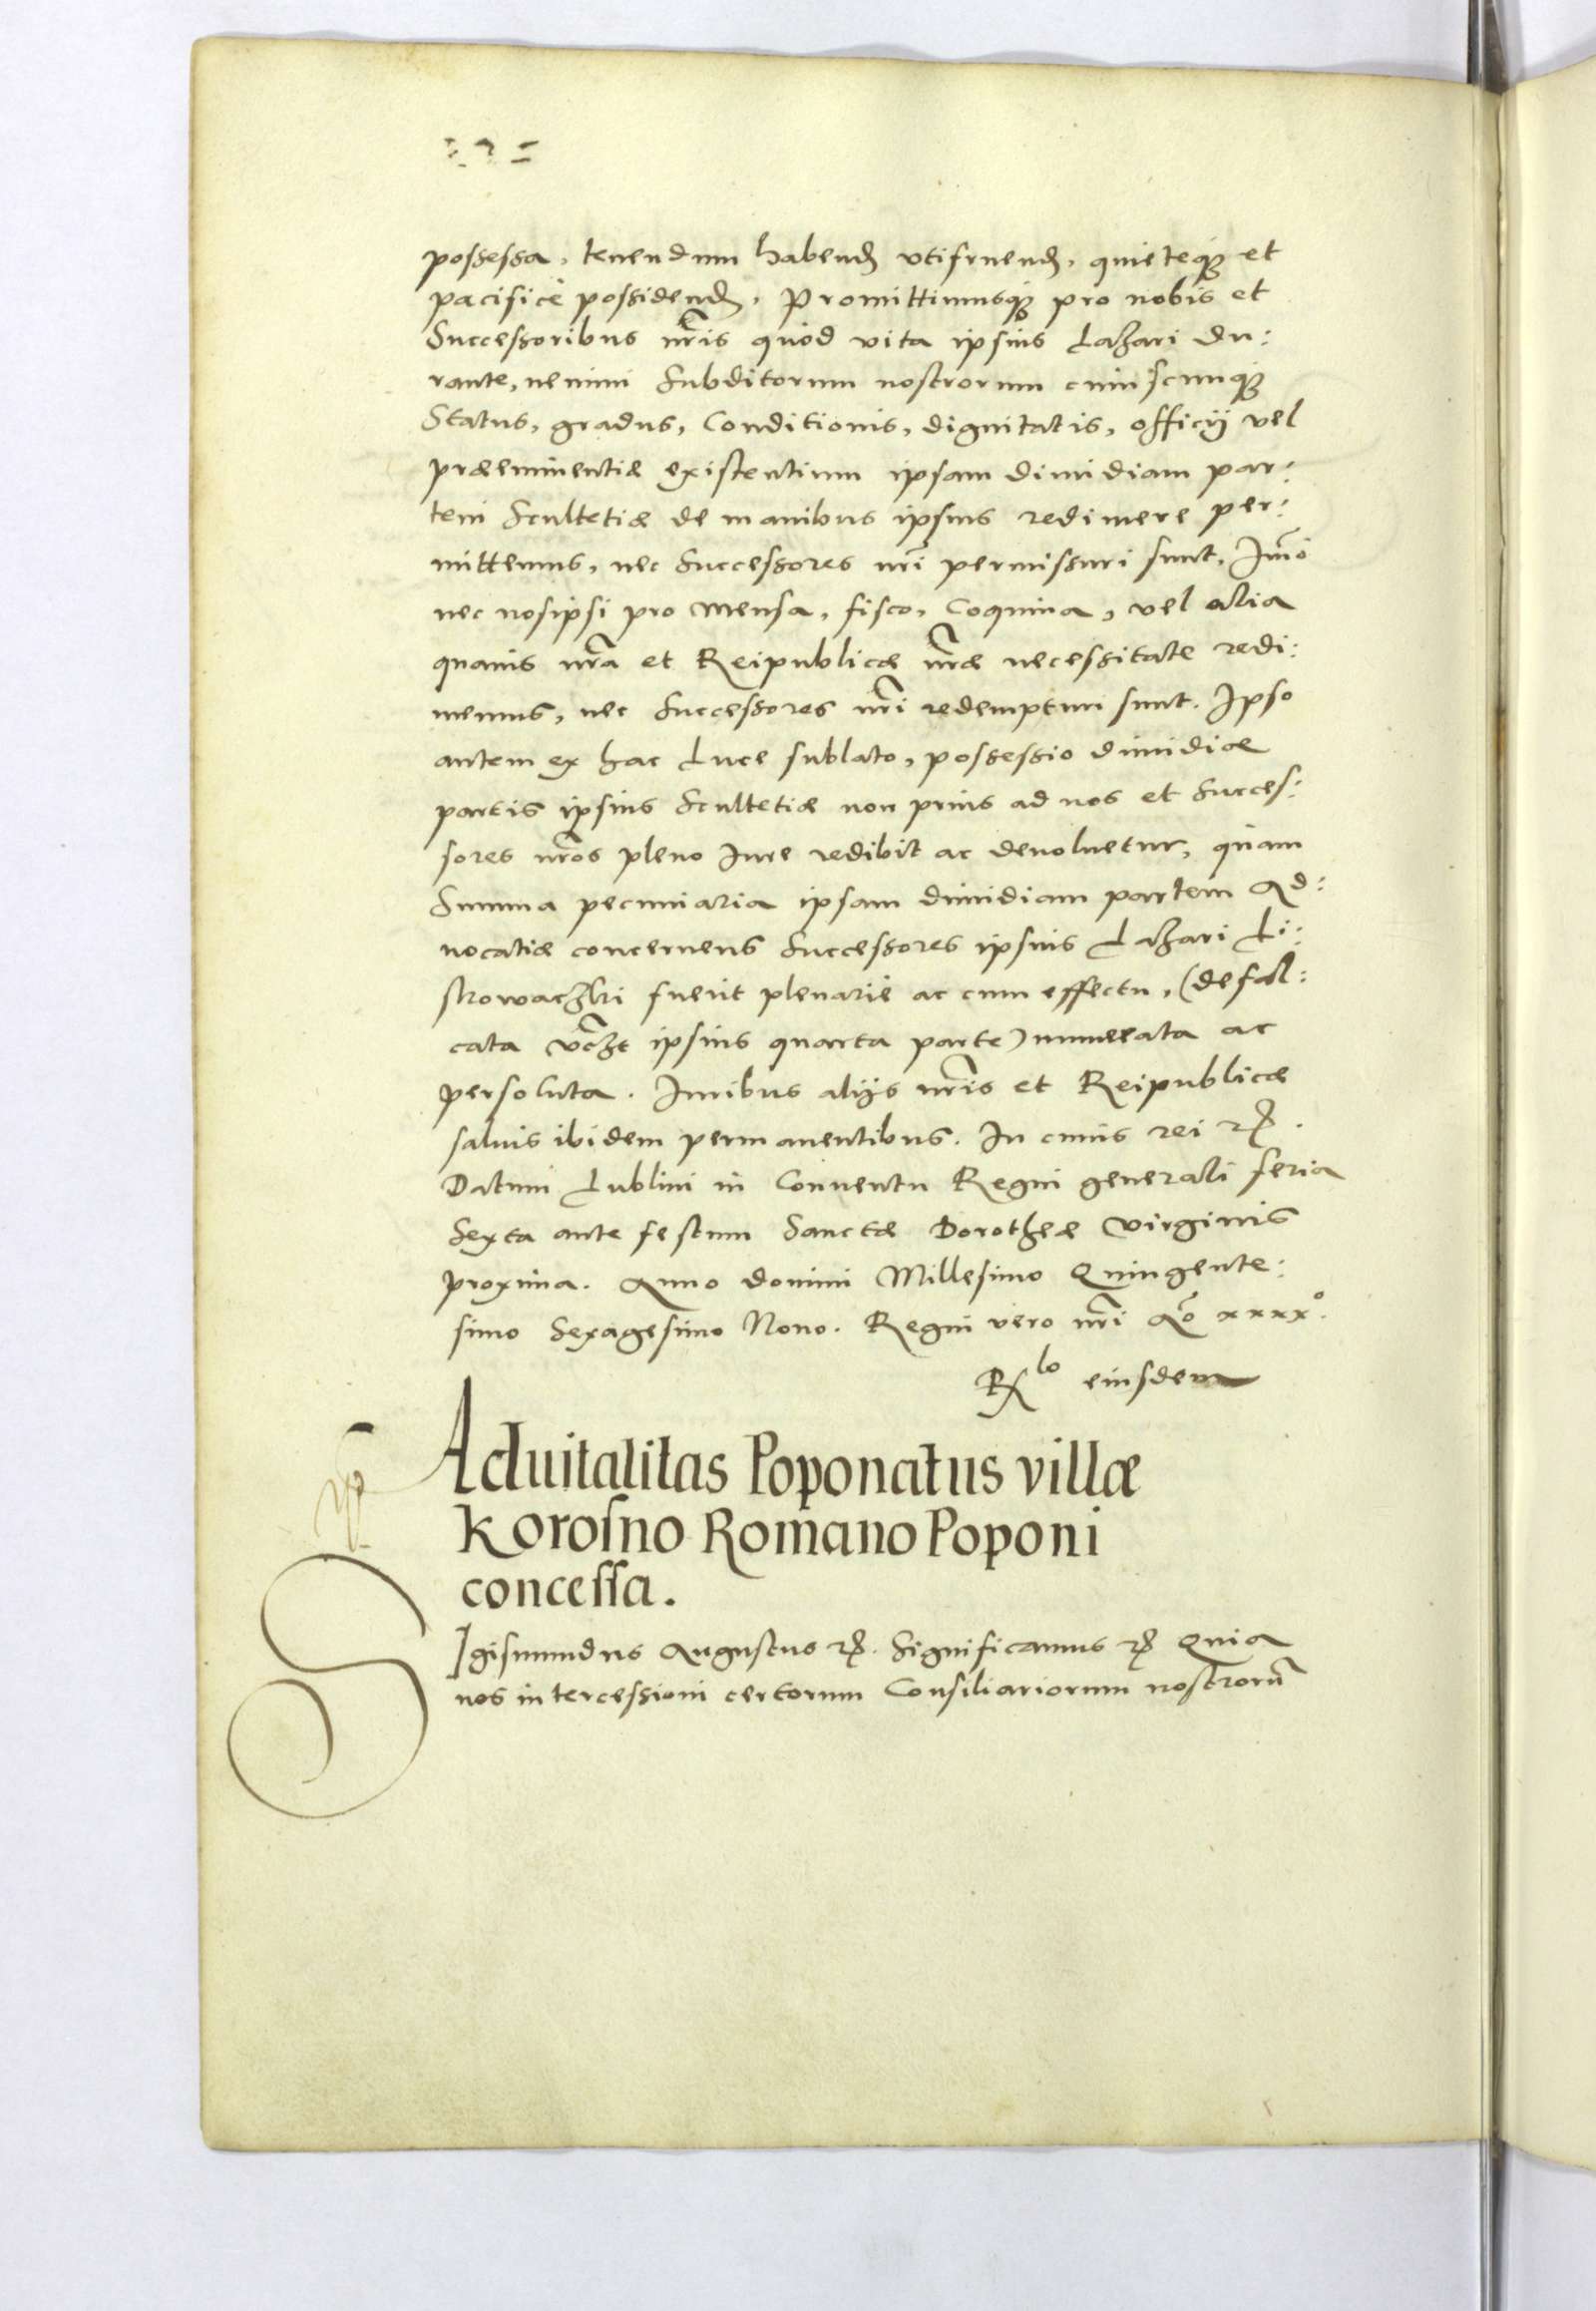 possessa, tenendum habend vtifruend, quieteq et
pacificè possidend, Promittimusq pro nobis et
Successoribus nris quòd vita ipsius Lazari du:
rante, nemini Subditorum nostrorum cuiuscunq
Status, gradus, Conditionis, dignitatis, officij vel
præeminentiæ existentium ipsam dimidiam par:
tem Scultetiæ de manibus ipsius redimere per:
mittemus, nec Successores nri permissuri sunt, Imò
nec nosipsi pro mensa, fisco, Coquina, vel alia
quauis nra et Reipublicæ nræ necessitate redi:
memus, nec Successores nri redempturi sunt. Ipso
autem ex hac Luce sublato, possessio dimidiæ
partis ipsius Scultetiæ non prius ad nos et Succes:
sores nros pleno Iure redibit ac deuoluetur, quàm
Summa pecuniaria ipsam dimidiam partem Ad:
uocatiæ concernens Successores ipsius Lazari Li:
strowaczki fuerit plenariè ac cum effectu, (defal:
cata vczt ipsius quarta parte) numerata ac
persoluta. Iuribus alijs nris et Reipublicæ
saluis ibidem permanentibus. In cuius rei etc.
Datum Lublini in Conuentu Regni generali feria
Sexta ante festum Sanctæ Dorotheæ Virginis
proxima. Anno domini Millesimo Quingente:
simo Sexagesimo Nono. Regni vero nri Ao xxxxo.
Rlo eiusdem
Aduitalitas Poponatus villæ
Korosno Romano Poponi
concessa.
SIgismundus Augustus etc. Significamus etc Quia
nos intercessioni certorum Consiliariorum nostrorū